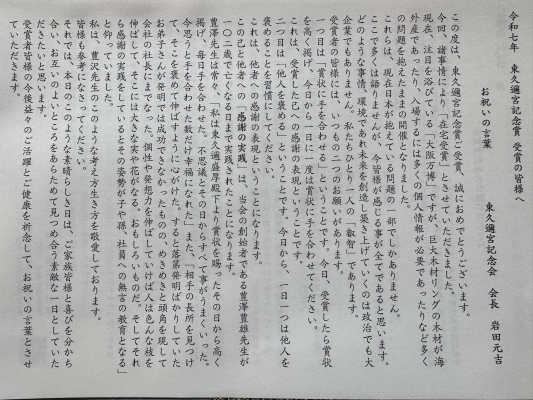 令和七年　東久邇宮記念賞　受賞の皆様へ
お祝いの言葉　　東久邇宮記念会　会長　岩田元吉
この度は、東久邇宮記念賞ご受賞、誠におめでとうございます。
今回、諸事情により「在宅受賞」とさせていただきました。
現在、注目を浴びている「大阪万博」ですが、巨大木材リングの木材が海
外産であったり、入場するには多くの個人情報が必要であったりなど多く
の問題を抱えたままの開催となりました。
これらは、現在日本が抱えている問題の一部でしかありません。
ここで多くは語りませんが、今皆様が感じる事が全てであると思います。
どのような事情、環境であれ未来を創造し築き上げていくのは政治でも大
企業でもありません。私たちひとり一人の「叡智」であります。
受賞者の皆様には、いつもふたつのお願いがあります。
一つ目は「賞状に手を合わせる」ということです。今日、受賞したら賞状
を高く掲げ、今日から一日に一度は賞状に手を合わせてください。
これは、受賞した己への感謝の表現ということです。
二つ目は「他人を褒める」ということです。今日から、一日一つは他人を
褒めることを習慣にしてください。
これは、他者への感謝の表現ということになります。
この己と他者への「感謝の実践」は、当会の創始者である豊澤豊雄先生が
一〇二歳で亡くなる日まで実践されたことになります。
豊澤先生は常々、「私は東久邇盛厚殿下より賞状を賜ったその日から高く
掲げ、毎日手を合わせた。不思議とその日からすべて事がうまくいった。
今思うと手を合わせた数だけ幸福になれた」また、「相手の長所を見つけ
て、そこを褒めて伸ばすように心がけた。すると落第発明ばかりしていた
お弟子さんが発明では成功できなかったものの、めきめきと頭角を現して
会社の社長にまでなった。個性や発想力を伸ばしていけば人は色んな枝を
伸ばして、そこには大きな実や花がなる。おもしろいものだ。そしてそれ
ら感謝の実践をしているとその姿勢が子や孫、社員への無言の教育となる」
と仰っていました。
私は、豊沢先生のこのような考え方生き方を敬愛しております。
皆様も参考になさってください。
それでは、本日のこのような素晴らしき日は、ご家族皆様と喜びを分かち
合い、お互いのよいところをあらためて見つめ合う素敵な一日としていた
だきたいと思います。
受賞者皆様の今後益々のご活躍とご健康を祈念して、お祝いの言葉とさせ
ていただきます。